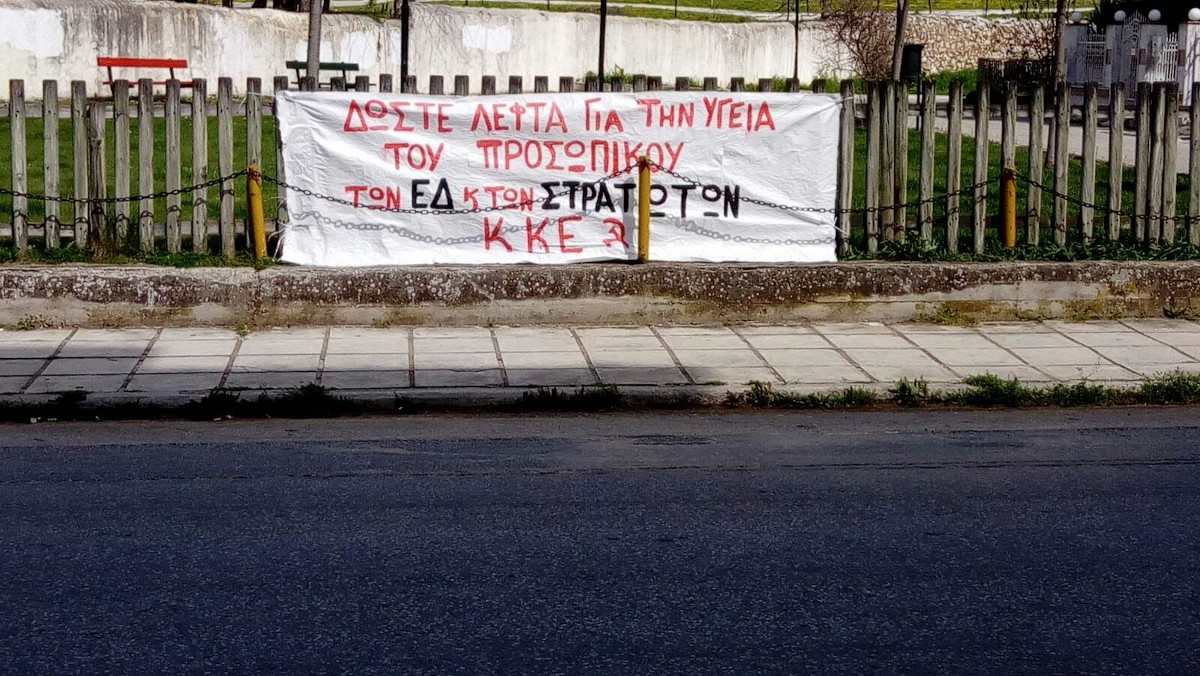 ΔΩΣΤΕ ΛΕΦΤΑ ΓΙΑ ΤΗΝ ΥΓΕΙΑ
ΤΟΥ ΠΡΟΣΩΠΙΚΟΥ
ΤΩΝ ΕΔ Κ ΤΩΝ ΣΤΡΑΤΙΩΤΩΝ
ΚΚΕ